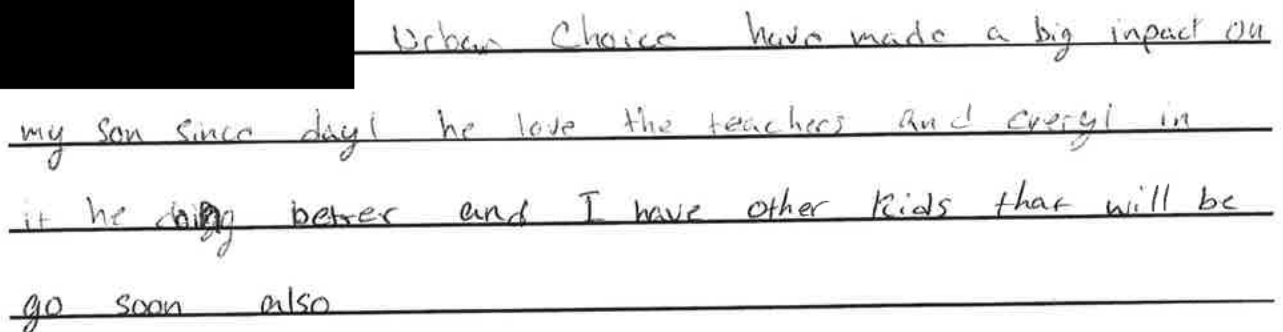 Urban Choice have made a big inpact on
my son since day1 he love the teachers and every1 in
it he doing better and I have other kids that will be
go soon also